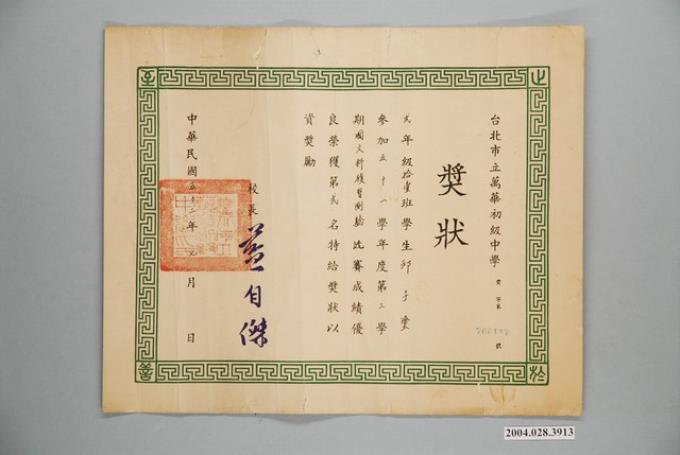 台北市立萬華初級中學
獎字第
號
獎狀
弍年級拾壹班學生邱
參加五十一學年度第二學
期國文科複習測驗比賽成績優
良榮獲第弍名特給獎狀以
資獎勵
校長
蓝自傑
中華民國五十二年元月 日
止
至
善
於
2004.028.3913